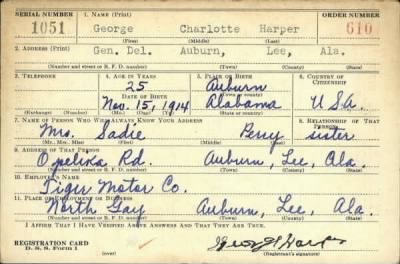 SERIAL NUMBER 1. NAME (Print) ORDER NUMBER
1051 George Charlotte Harper 610
(First) (Middle) (Last)
2. ADDRESS (Print)
Gen. Del. Auburn, Lee, Ala.
(Number and street or R. F. D. number) (Town) (County) (State)
3. TELEPHONE 4. AGE IN YEARS 5. PLACE OF BIRTH 6. COUNTRY OF CITIZENSHIP
25 Auburn
DATE OF BIRTH (Town or county)
Nov. 15, 1914 Alabama U.S.A.
(Exchange) (Number) (Mo.) (Day) (Yr.) (State or country)
7. NAME OF PERSON WHO WILL ALWAYS KNOW YOUR ADDRESS 8. RELATIONSHIP OF THAT PERSON
Mrs. Sadie Perry sister
(Mr., Mrs., Miss) (First) (Middle) (Last)
9. ADDRESS OF THAT PERSON
Opelika Rd. Auburn, Lee, Ala.
(Number and street or R. F. D. number) (Town) (County) (State)
10. EMPLOYER'S NAME
Tiger Motor Co.
11. PLACE OF EMPLOYMENT OR BUSINESS
North Gay Auburn, Lee, Ala.
(Number and street or R. F. D. number) (Town) (County) (State)
I AFFIRM THAT I HAVE VERIFIED ABOVE ANSWERS AND THAT THEY ARE TRUE.
REGISTRATION CARD
D. S. S. Form 1 (over) (Registrant's signature)